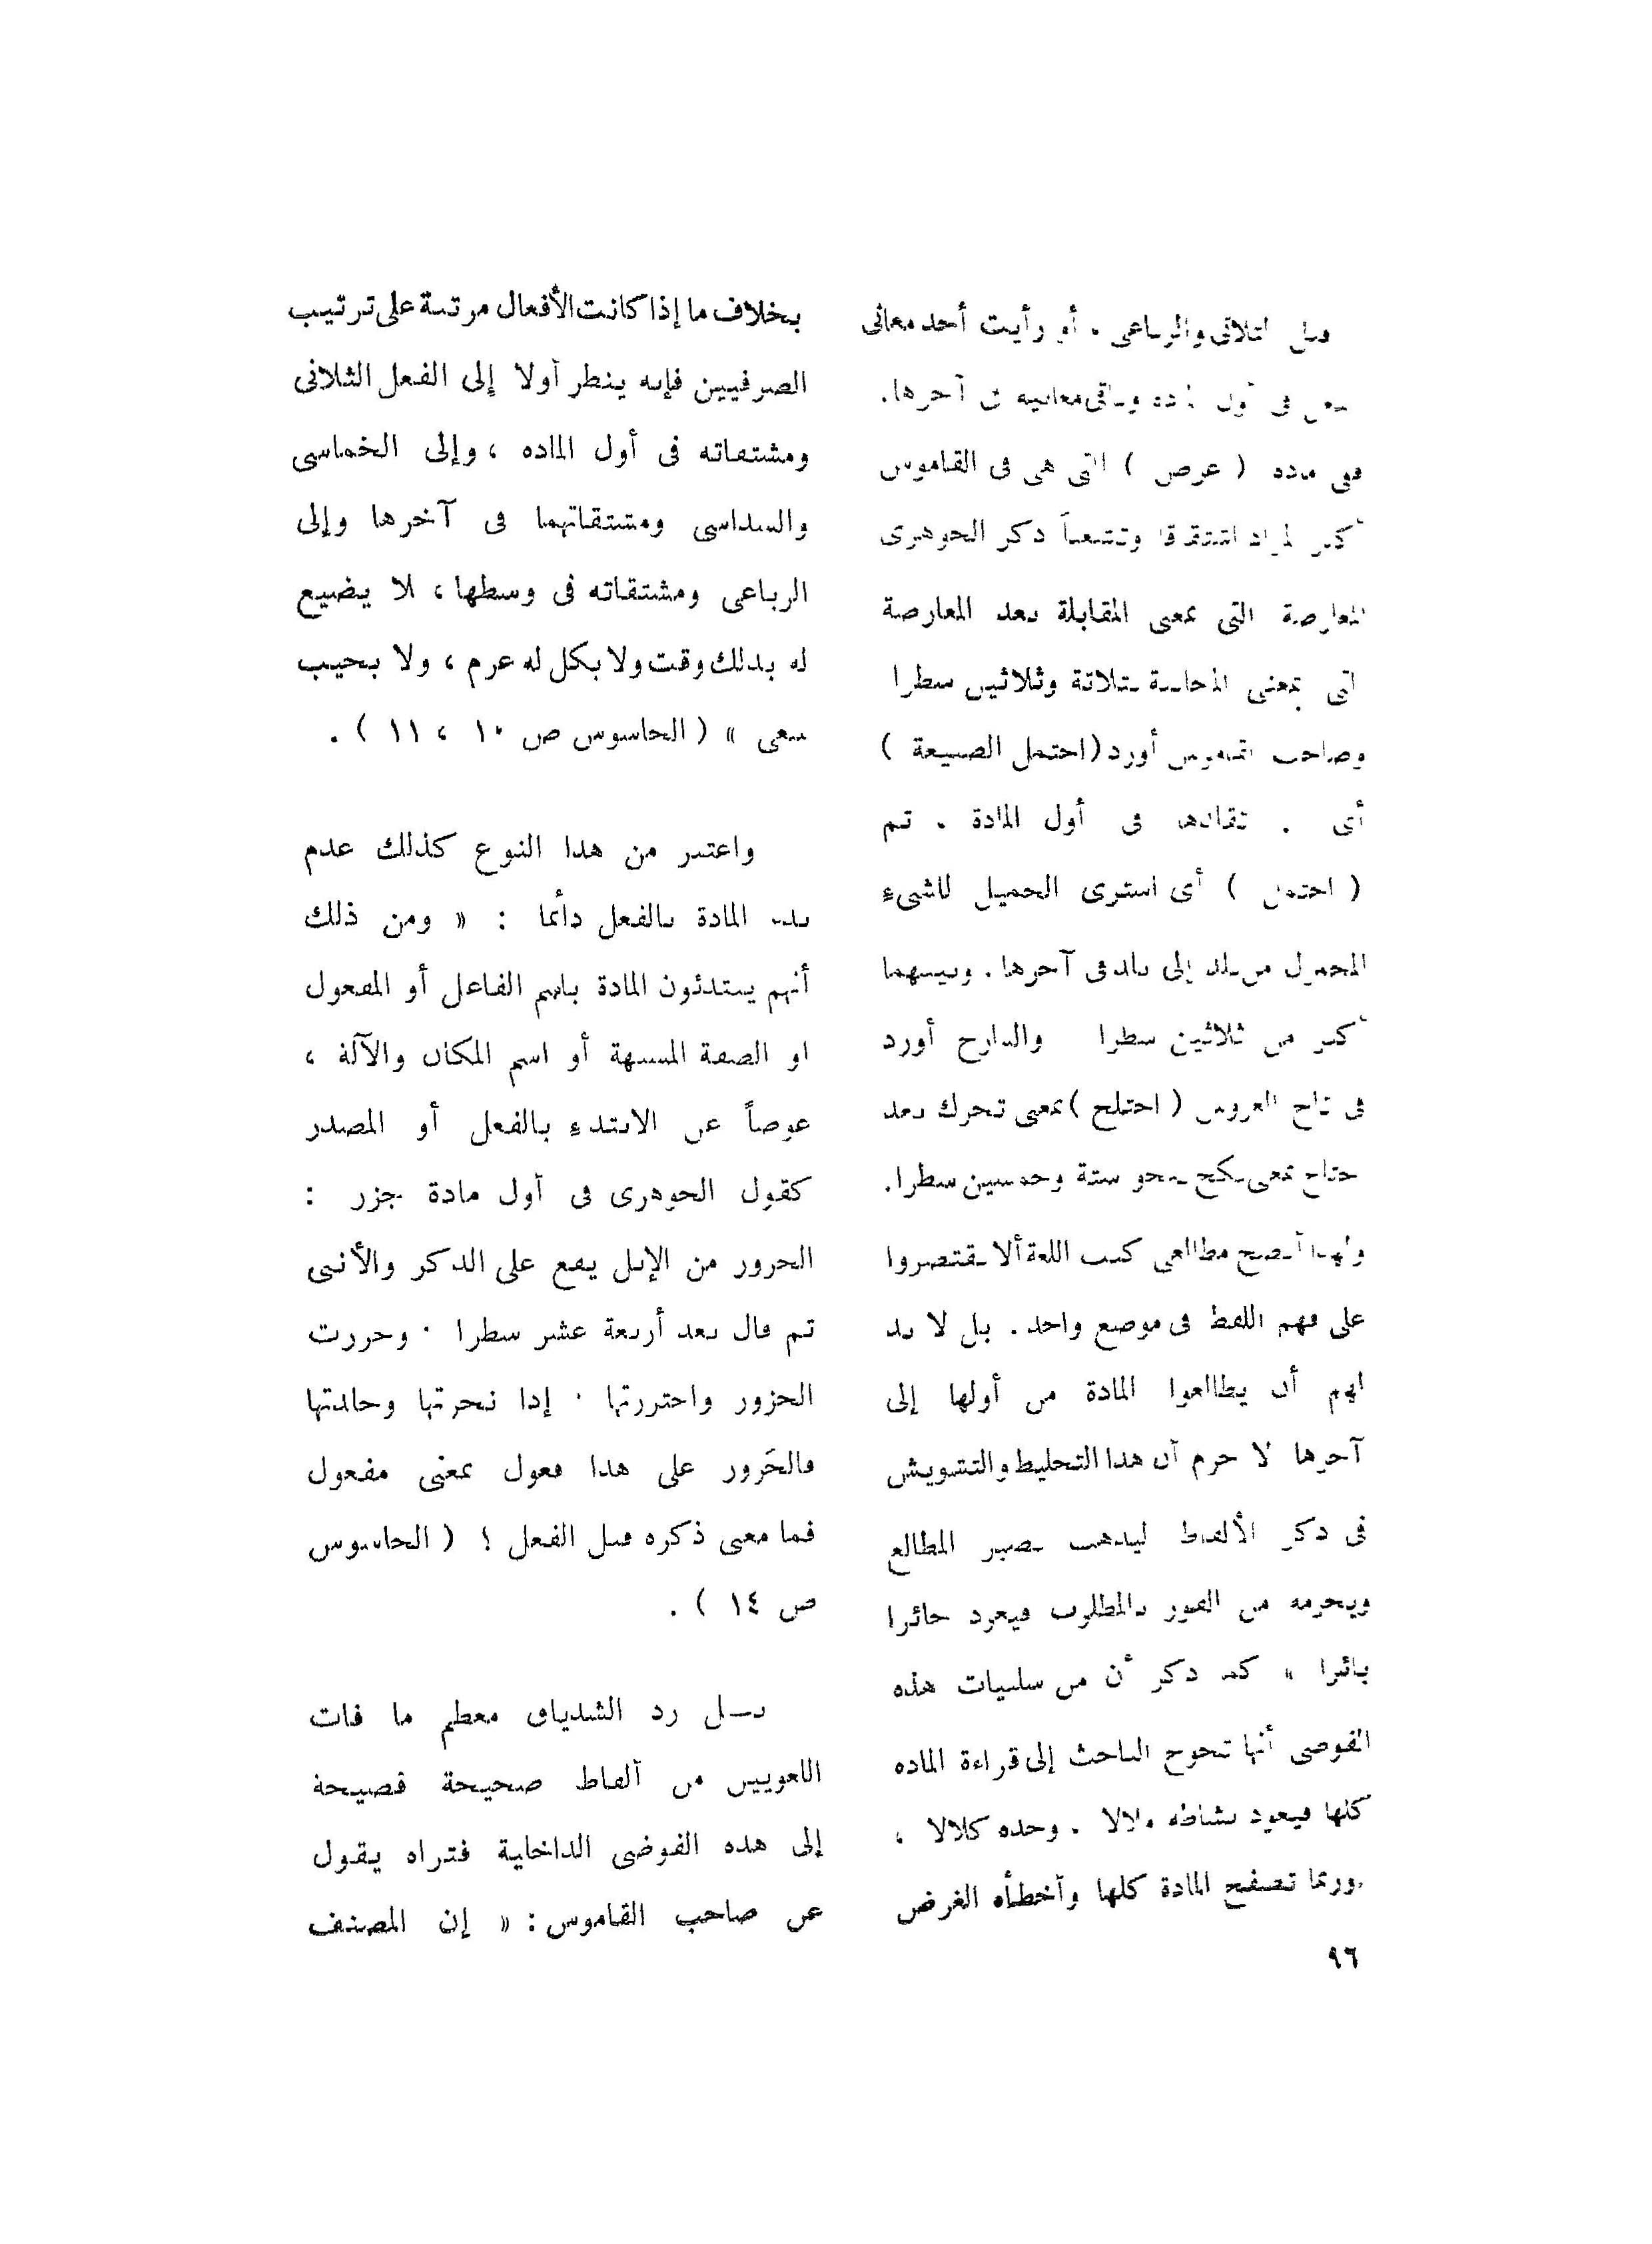 قبل الثلاثى والرباعى . أو رأيت أحد معانى
الفعل فى أول المادة وباقى معانيه فى آخرها.
ففى مادة ( عرض ) التى هى فى القاموس
أكثر المواد اشتقاقا وتشعبا ذكر الجوهرى
المعارضة التى بمعنى المقابلة بعد المعارضة
التى بمعنى المجانبة بثلاثة وثلاثين سطرا
وصاحب القاموس أورد (احتمل الصنيعة )
أى . تقلدها فى أول المادة . ثم
( احتمل ) أى اشترى الحميل للشىء
المحمول من بلد إلى بلد فى آخرها . وبينهما
أكثر من ثلاثين سطرا والشارح أورد
فى تاج العروس ( اختلج ) بمعنى تحرك بعد
اختلج بمعنى نكح بنحو ستة وخمسين سطرا.
ولهذا أنصح مطالعى كتب اللغة ألا يقتصروا
على فهم اللفظ فى موضع واحد . بل لا بد
لهم أن يطالعوا المادة من أولها إلى
آخرها لا جرم أن هذا التخليط والتشويش
فى ذكر الألفاظ ليذهب بصبر المطالع
ويحرمه من الفوز بالمطلوب فيعود حائرا
بائرا » كما ذكر أن من سلبيات هذه
الفوضى أنها تحوج الباحث إلى قراءة المادة
كلها فيعود نشاطه ملالا . وجده كلالا ،
وربما تصفح المادة كلها وأخطأه الغرض
٩٦
بخلاف ما إذا كانت الأفعال مرتبة على ترتيب
الصرفيين فإنه ينظر أولا إلى الفعل الثلاثى
ومشتقاته فى أول المادة ، وإلى الخماسى
والسداسى ومشتقاتهما فى آخرها وإلى
الرباعى ومشتقاته فى وسطها ، لا يضيع
له بذلك وقت ولا يكل له عزم ، ولا يخيب
سعى » ( الجاسوس ص ١٠ ، ١١ ) .
واعتبر من هذا النوع كذلك عدم
بدء المادة بالفعل دائما : « ومن ذلك
أنهم يبتدئون المادة باسم الفاعل أو المفعول
او الصفة المشبهة أو اسم المكان والآلة ،
عوضاً عن الابتدء بالفعل أو المصدر
كقول الجوهرى فى أول مادة جزر :
الجزور من الإبل يقع على الذكر والأنثى
ثم قال بعد أربعة عشر سطرا . وجزرت
الجزور واجتزرتها . إذا نحرتها وجلدتها
فالجَزور على هذا فعول بمعنى مفعول
فما معنى ذكره قبل الفعل ! ( الجاسوس
ص ١٤ ) .
بل رد الشدياق معظم ما فات
اللغويين من ألفاظ صحيحة فصيحة
إلى هذه الفوضى الداخلية فتراه يقول
عن صاحب القاموس : « إن المصنف